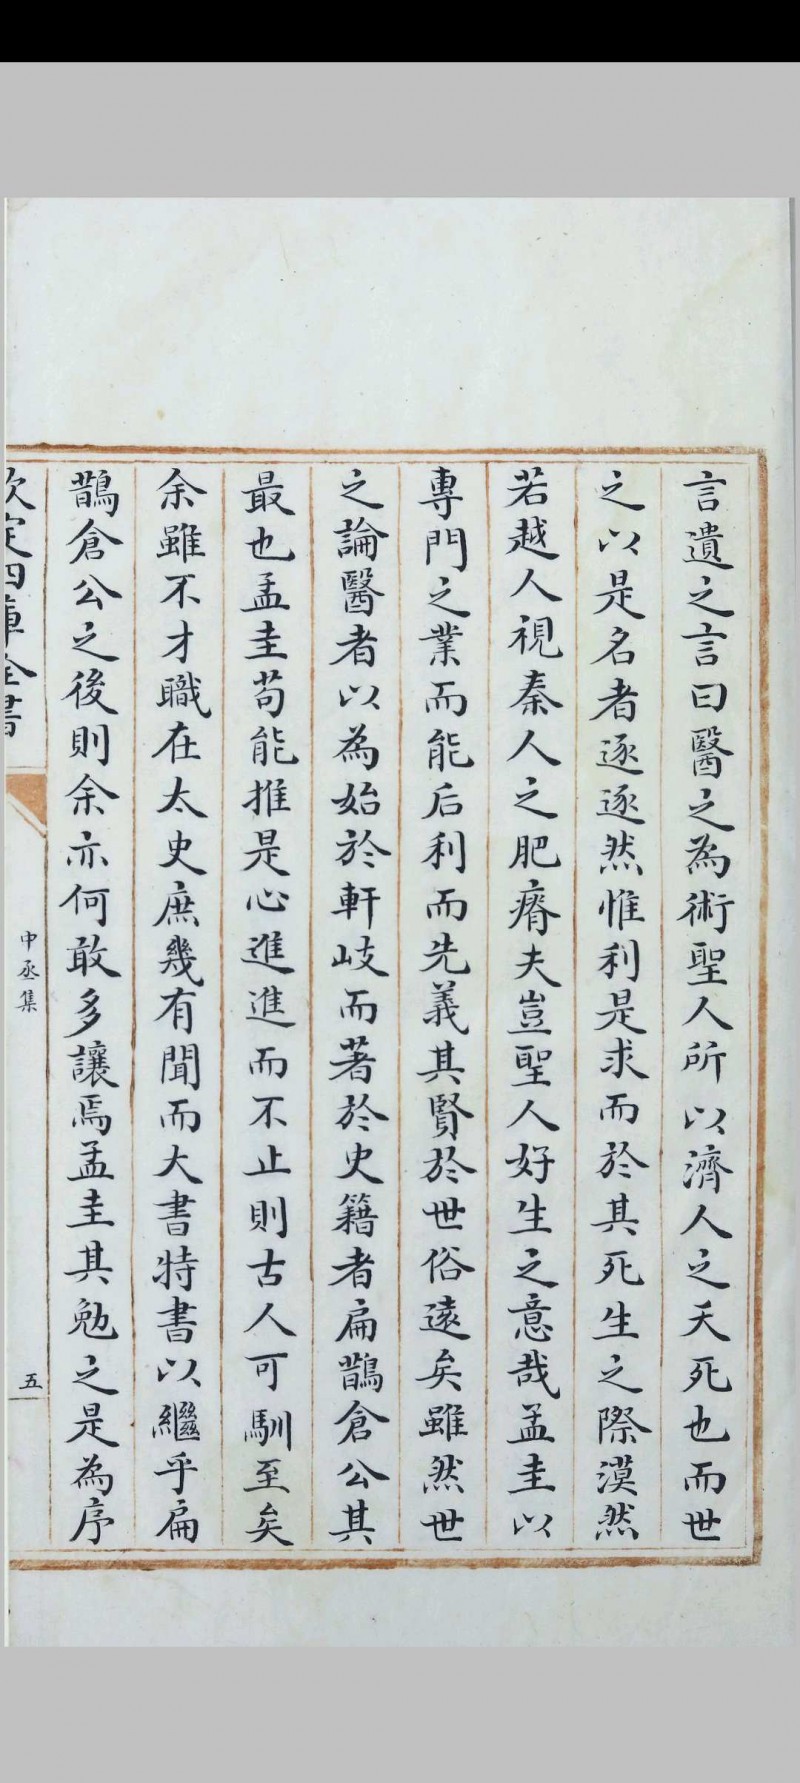 言遺之言曰醫之為術聖人所以濟人之夭死也而世
之以是名者逐逐然惟利是求而於其死生之際漠然
若越人視秦人之肥瘠夫豈聖人好生之意哉孟圭以
專門之業而能后利而先義其賢於世俗遠矣雖然世
之論醫者以為始於軒岐而著於史籍者扁鵲倉公其
最也孟圭苟能推是心進進而不止則古人可馴至矣
余雖不才職在太史庶幾有聞而大書特書以繼乎扁
鵲倉公之後則余亦何敢多讓焉孟圭其勉之是為序
欽定四庫全書
中丞集
五